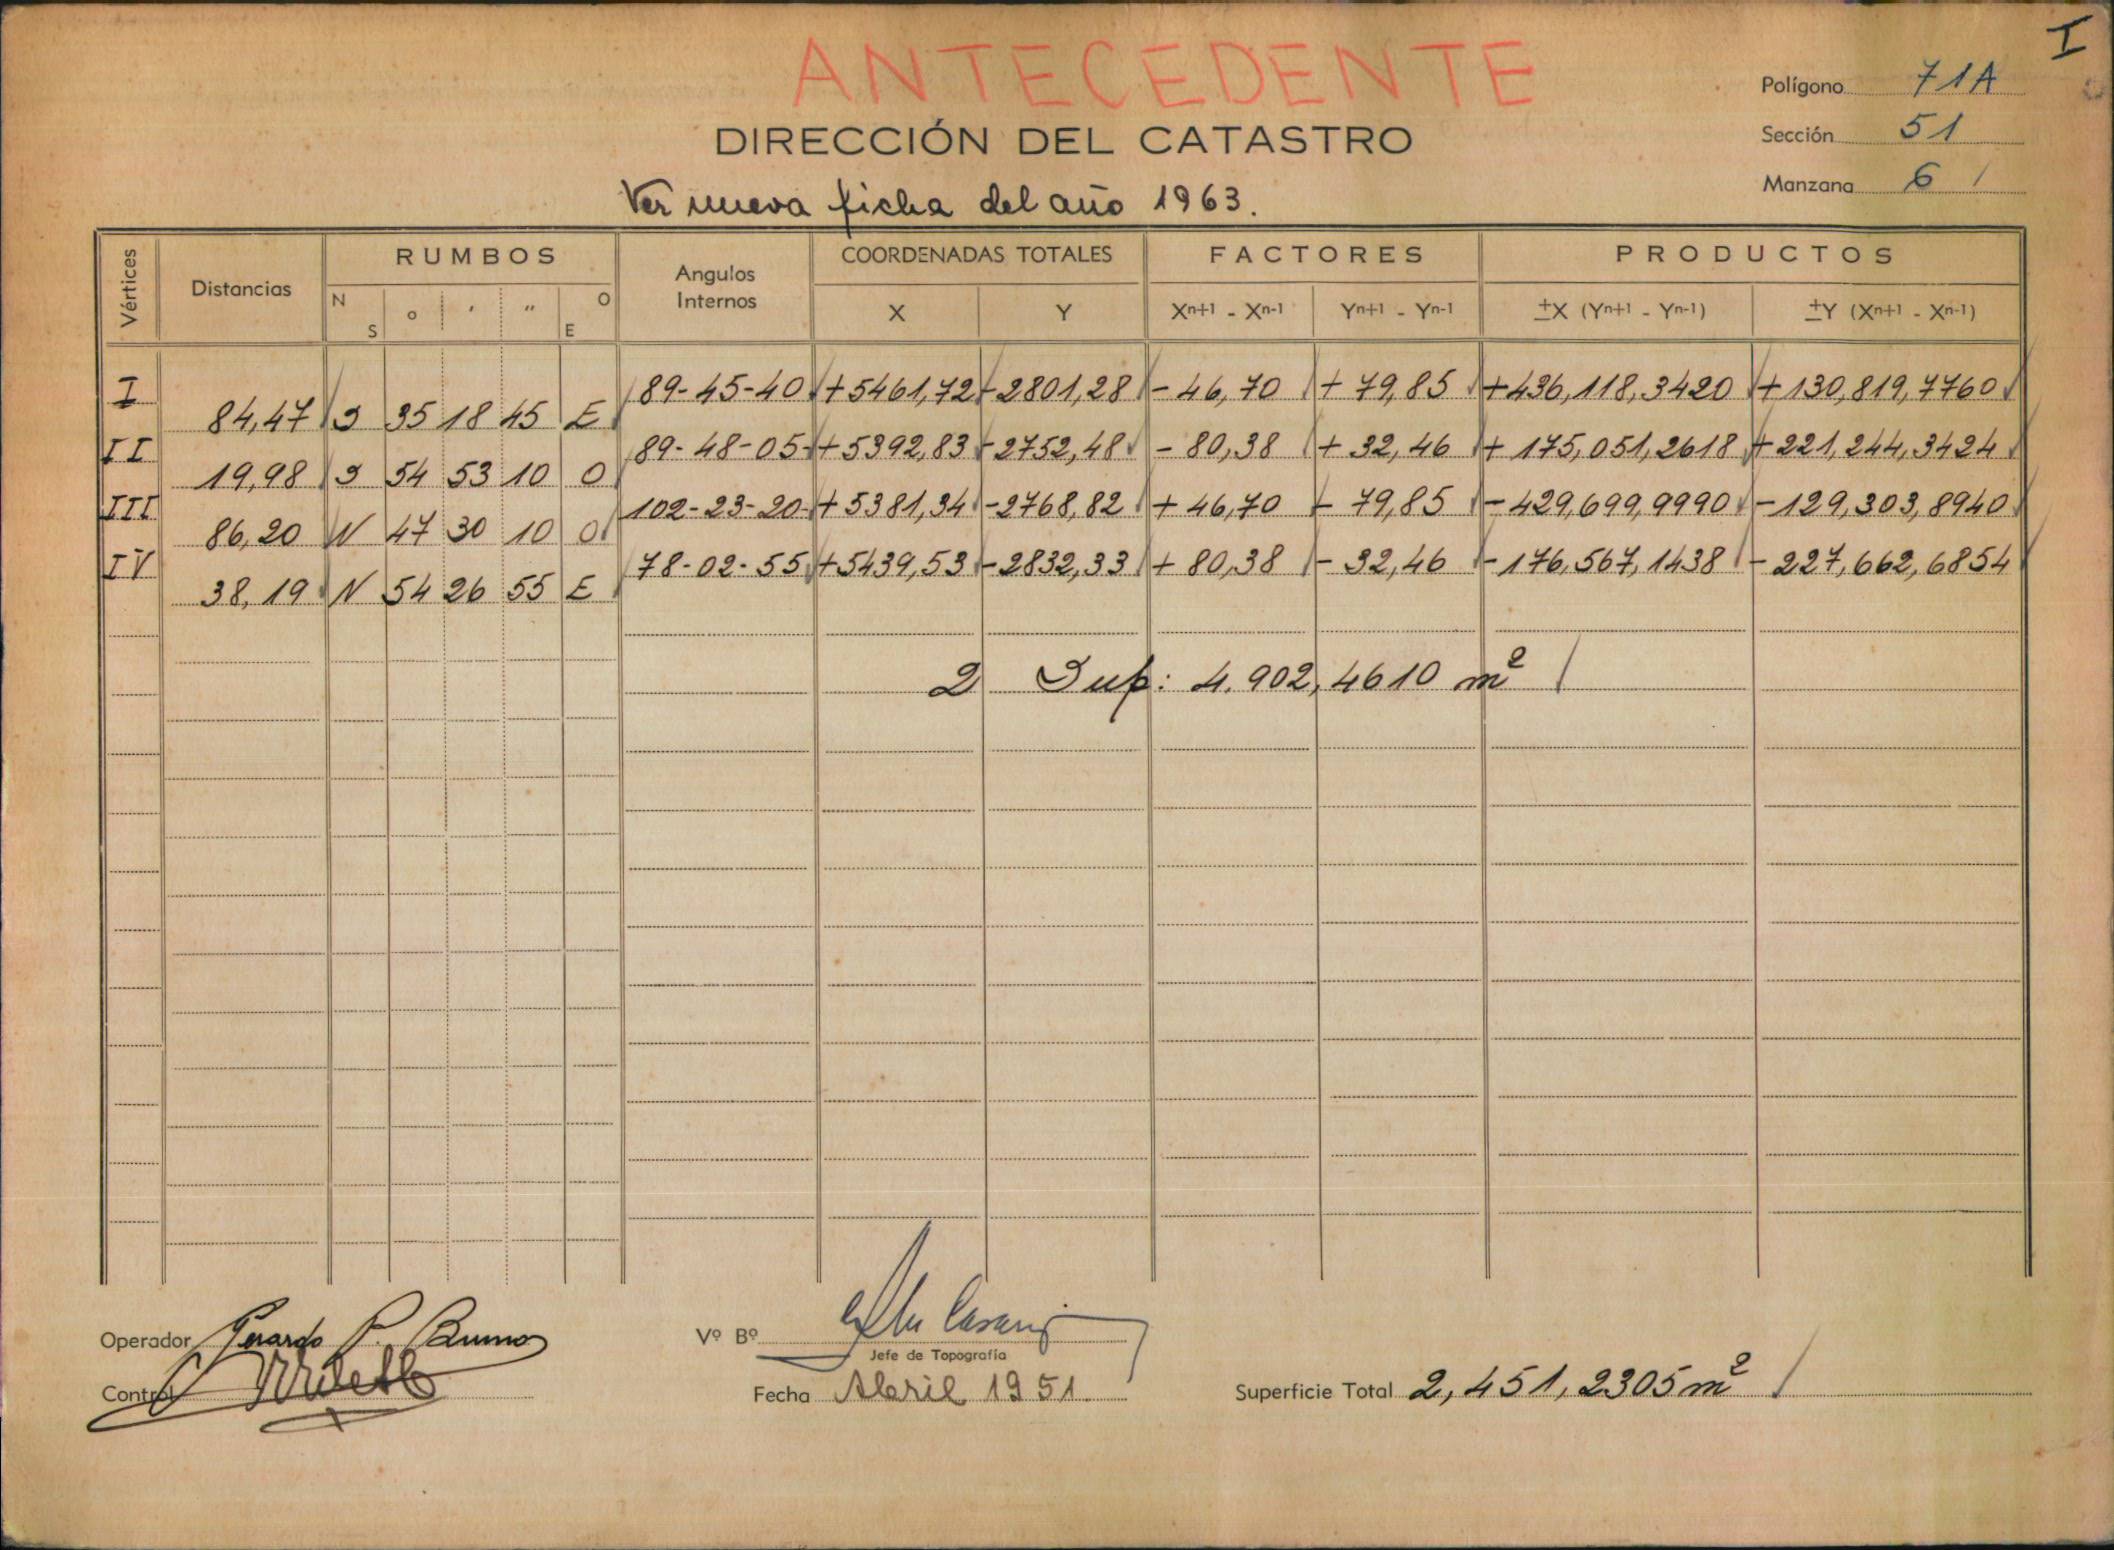 I
ANTECEDENTE
Polígono 71A
DIRECCIÓN DEL CATASTRO
Sección 51
Manzana 6
Ver nueva ficha del año 1963.
Vértices Distancias RUMBOS Angulos Internos COORDENADAS TOTALES FACTORES PRODUCTOS
N S ° ' " O E X Y Xn+1 - Xn-1 Yn+1 - Yn-1 ±X (Yn+1 - Yn-1) ±Y (Xn+1 - Xn-1)
I 89-45-40 +5461,72 -2801,28 -46,70 +79,85 +436,118,3420 +130,819,7760
84,47 S 35 18 45 E
II 89-48-05 +5392,83 -2752,48 -80,38 +32,46 +175,051,2618 +221,244,3424
19,98 S 54 53 10 O
III 102-23-20 +5381,34 -2768,82 +46,70 -79,85 -429,699,9990 -129,303,8940
86,20 N 47 30 10 O
IV 78-02-55 +5439,53 -2832,33 +80,38 -32,46 -176,567,1438 -227,662,6854
38,19 N 54 26 55 E
2 Sup: 4.902,4610 m²
Operador Gerardo P. Bruno
Vº Bº
Jefe de Topografía
Control
Fecha Abril 1951
Superficie Total 2,451,2305 m²